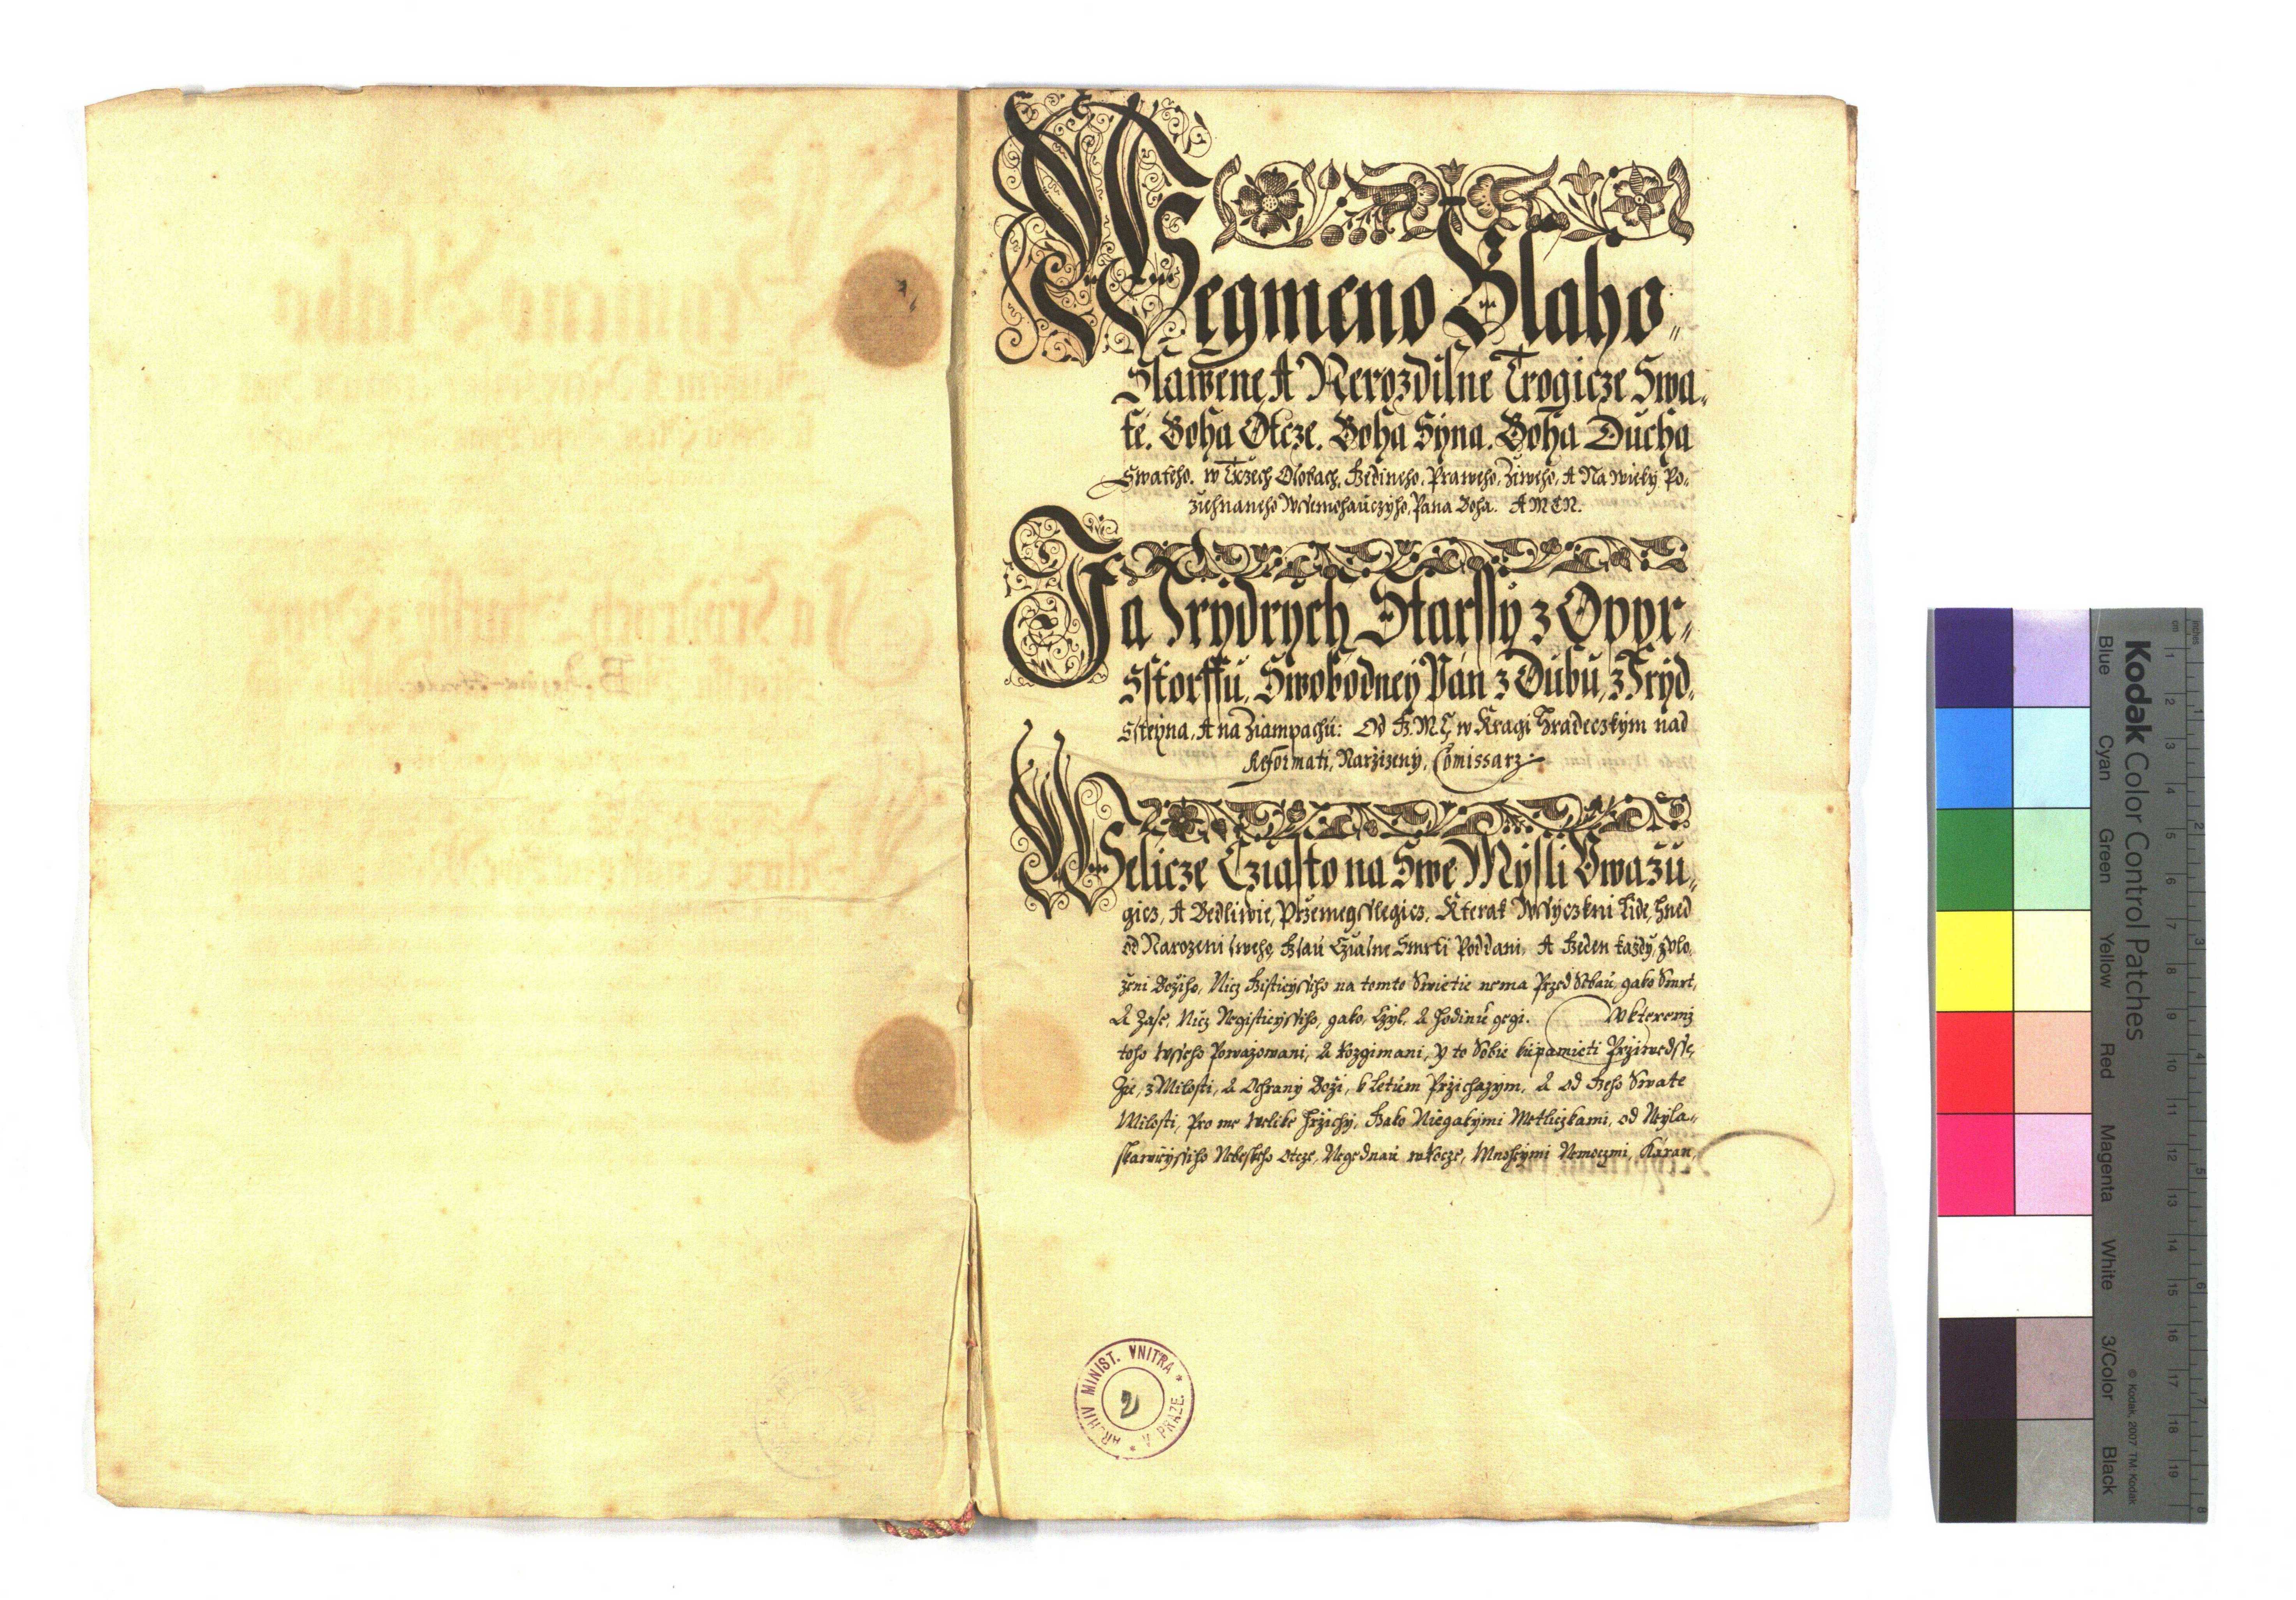 Wegmeno Blaho-
Slawene A Nerozdilne Trogicze Swa-
te. Boha Otcze. Boha Syna. Boha Ducha
Swateho. w Trzech Osobach, Jedineho, Praweho, Ziweho, A Na wieky Po-
ziehnaneho Wssemohauczyho, Pana Boha. AMEN.
Ja Frydrych Starssy z Oppr-
Sstorffu, Swobodney Pan z Dubu, z Fryd-
Ssteyna, A na Ziampachu: Od J. M. C. w Kragi Hradeczkym nad
Reformati, Narzizeny, Comissarz
Welicze Cziasto na Swe Mysli Uwazu-
gicz, A Bedliwie, Przemegsslegicz, Kterak Wssyczkni Lide, Hned
od Narozeni sweho, Jsau Cziasne Smrti Poddani, A Jeden kazdy, z vlo-
zeni Boziho, Nicz Jistieyssiho na tomto Swietie nema Przed Sebau, gako Smrt,
A Zase, Nicz Negistieyssiho, gako, Czyl, A Hodinu gegi. W kteremz
toho wsseho Powazowani, A Rozgimani, Y to Sobie kupamieti Przirwedsse,
Ze, z Milosti, A Ochrany Bozi, k Letum Przichazym, A od Jeho Swate
Milosti, Pro me welike Hrzichy, Jako Niegakymi Metliczkami, od Neyla-
skawieyssiho Nebeskeho Otcze, Negednau w Rocze, Mnohymi Nemoczmi, Karan,
ARCHIV MINIST. VNITRA * V PRAZE. *
2
Kodak Color Control Patches
Blue
Cyan
Green
Yellow
Red
Magenta
White
3/Color
Black
© Kodak, 2007 TM: Kodak
inches
1
2
3
4
5
6
7
8
cm
1
2
3
4
5
6
7
8
9
10
11
12
13
14
15
16
17
18
19